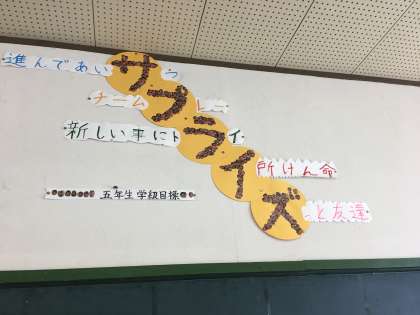 進んであいサつ
チームプレー
新しい事にトライ
イ所けん命
ズっと友達
五年生学級目標